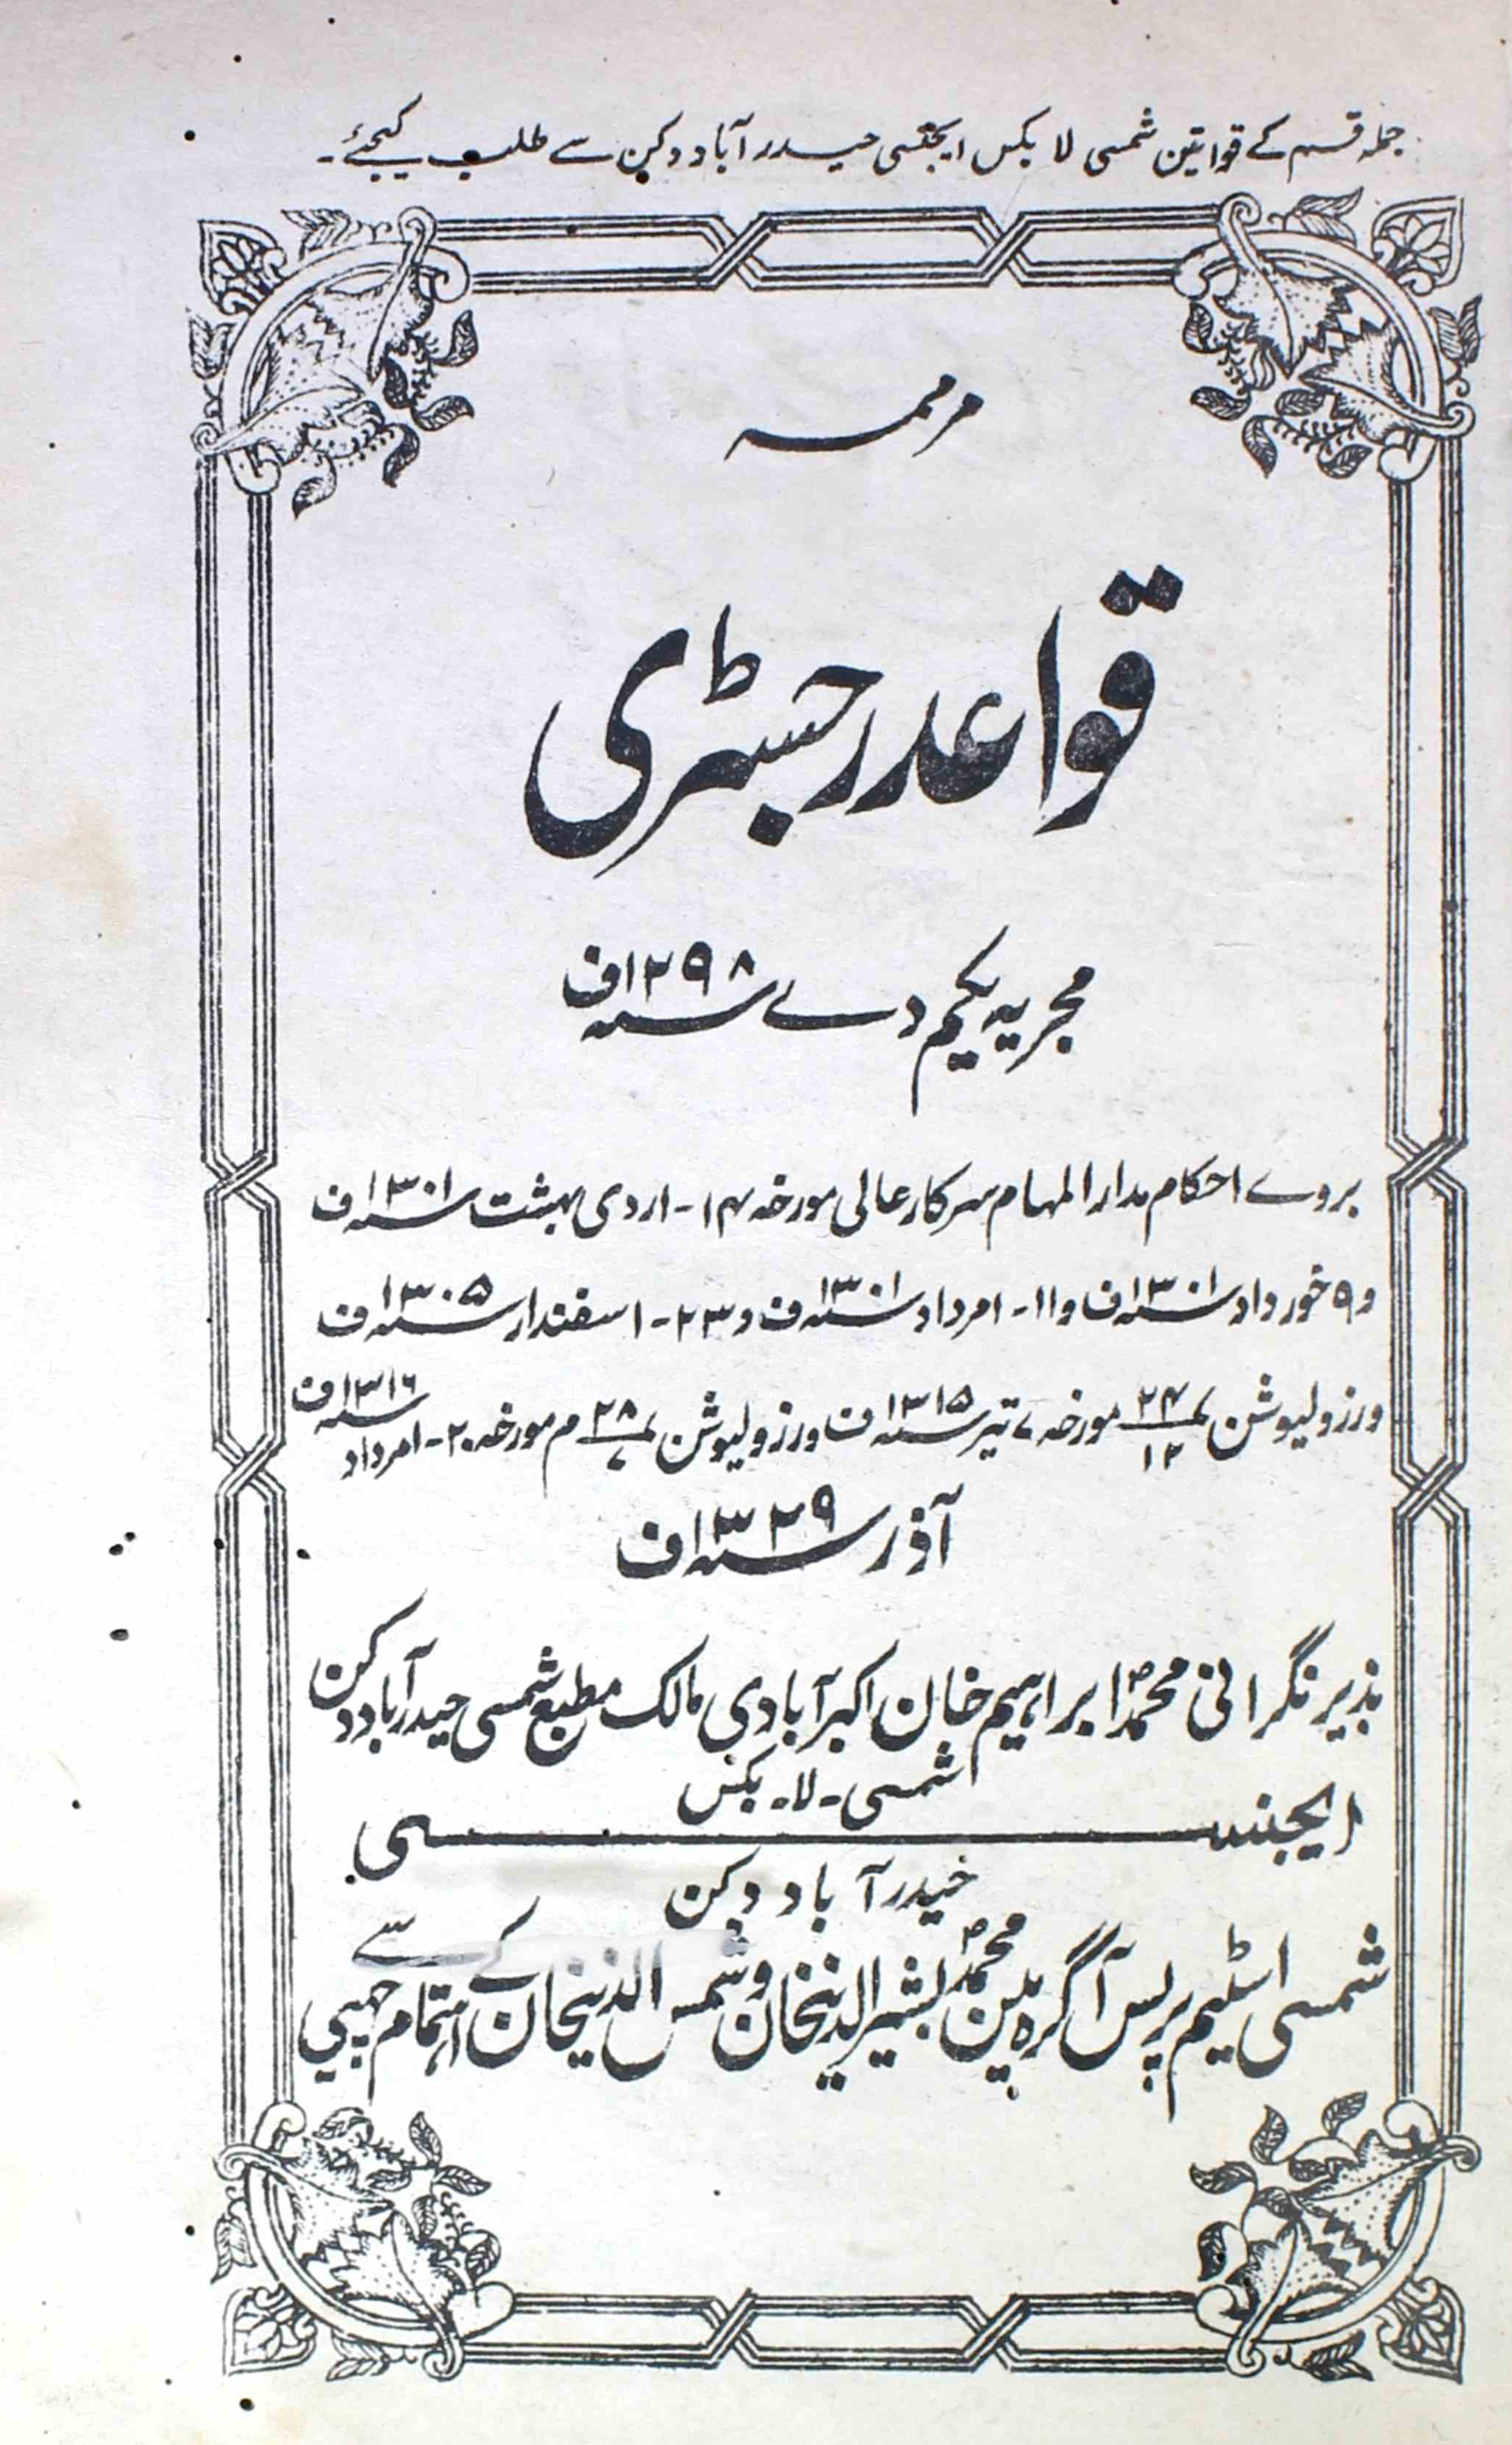 جملہ قسم کے قوانین شمسی لا بکس ایجنسی حیدرآباد دکن سے طلب کیجئے۔
مرممہ
قواعد رجسٹری
مجریہ یکم دے سنہ ۱۲۹۸ف
بروے احکام مدار المہام سرکار عالی مورخہ ۱۴۔ اردی بہشت سنہ ۱۳۰۱ف
و ۹ خورداد سنہ ۱۳۰۱ف و ۱۱۔ امرداد سنہ ۱۳۰۱ف و ۲۳۔ اسفندار سنہ ۱۳۰۵ف
ورزولیوشن ۲۴/۱۲ مورخہ ۷ تیر سنہ ۱۳۱۵ف ورزولیوشن ۲۸/۷ م مورخہ ۲۰۔ امرداد سنہ ۱۳۱۶ف
آذر سنہ ۱۳۲۹ف
بذیر نگرانی محمد ابراہیم خان اکبرآبادی مالک مطبع شمسی حیدرآباد دکن
شمسی۔ لا۔ بکس
ایجنسی
حیدرآباد دکن
شمسی اسٹیم پریس آگرہ میں محمد بشیرالدینخان و شمس الدینخان کے اہتمام سے چھپی